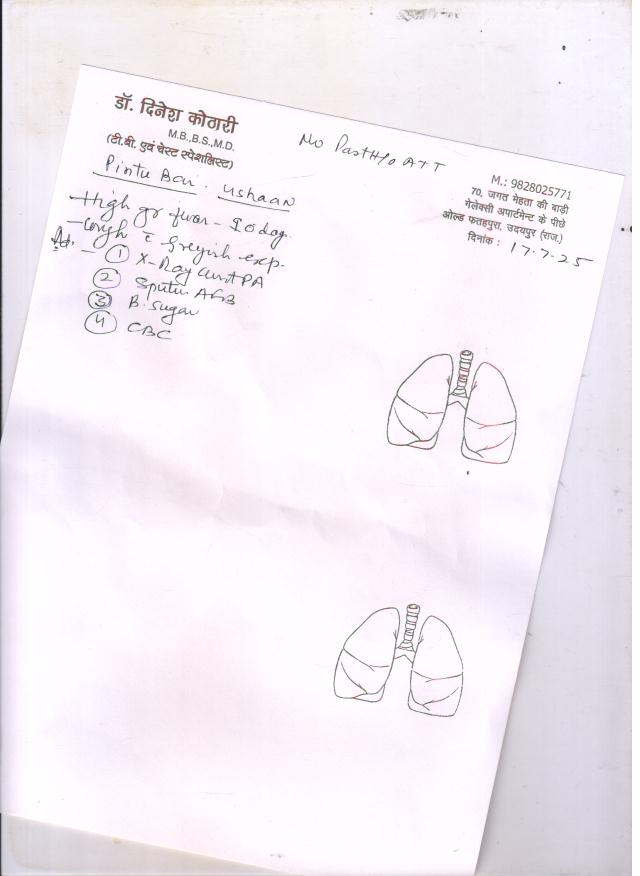 डॉ. दिनेश कोठारी
M.B.,B.S.,M.D.
(टी.बी. एवं चेस्ट स्पेशलिस्ट)
No Past H/o ATT
M.: 9828025771
70, जगत मेहता की बाड़ी
गेलेक्सी अपार्टमेन्ट के पीछे
ओल्ड फतहपुरा, उदयपुर (राज.)
दिनांक : 17.7.25
Pintu Bai.
- High gr fever - 10 day.
- Cough c̄ Greyish exp.
Ad. - ① X-Ray Chest PA
② Sputum AFB
③ B. Sugar
④ CBC